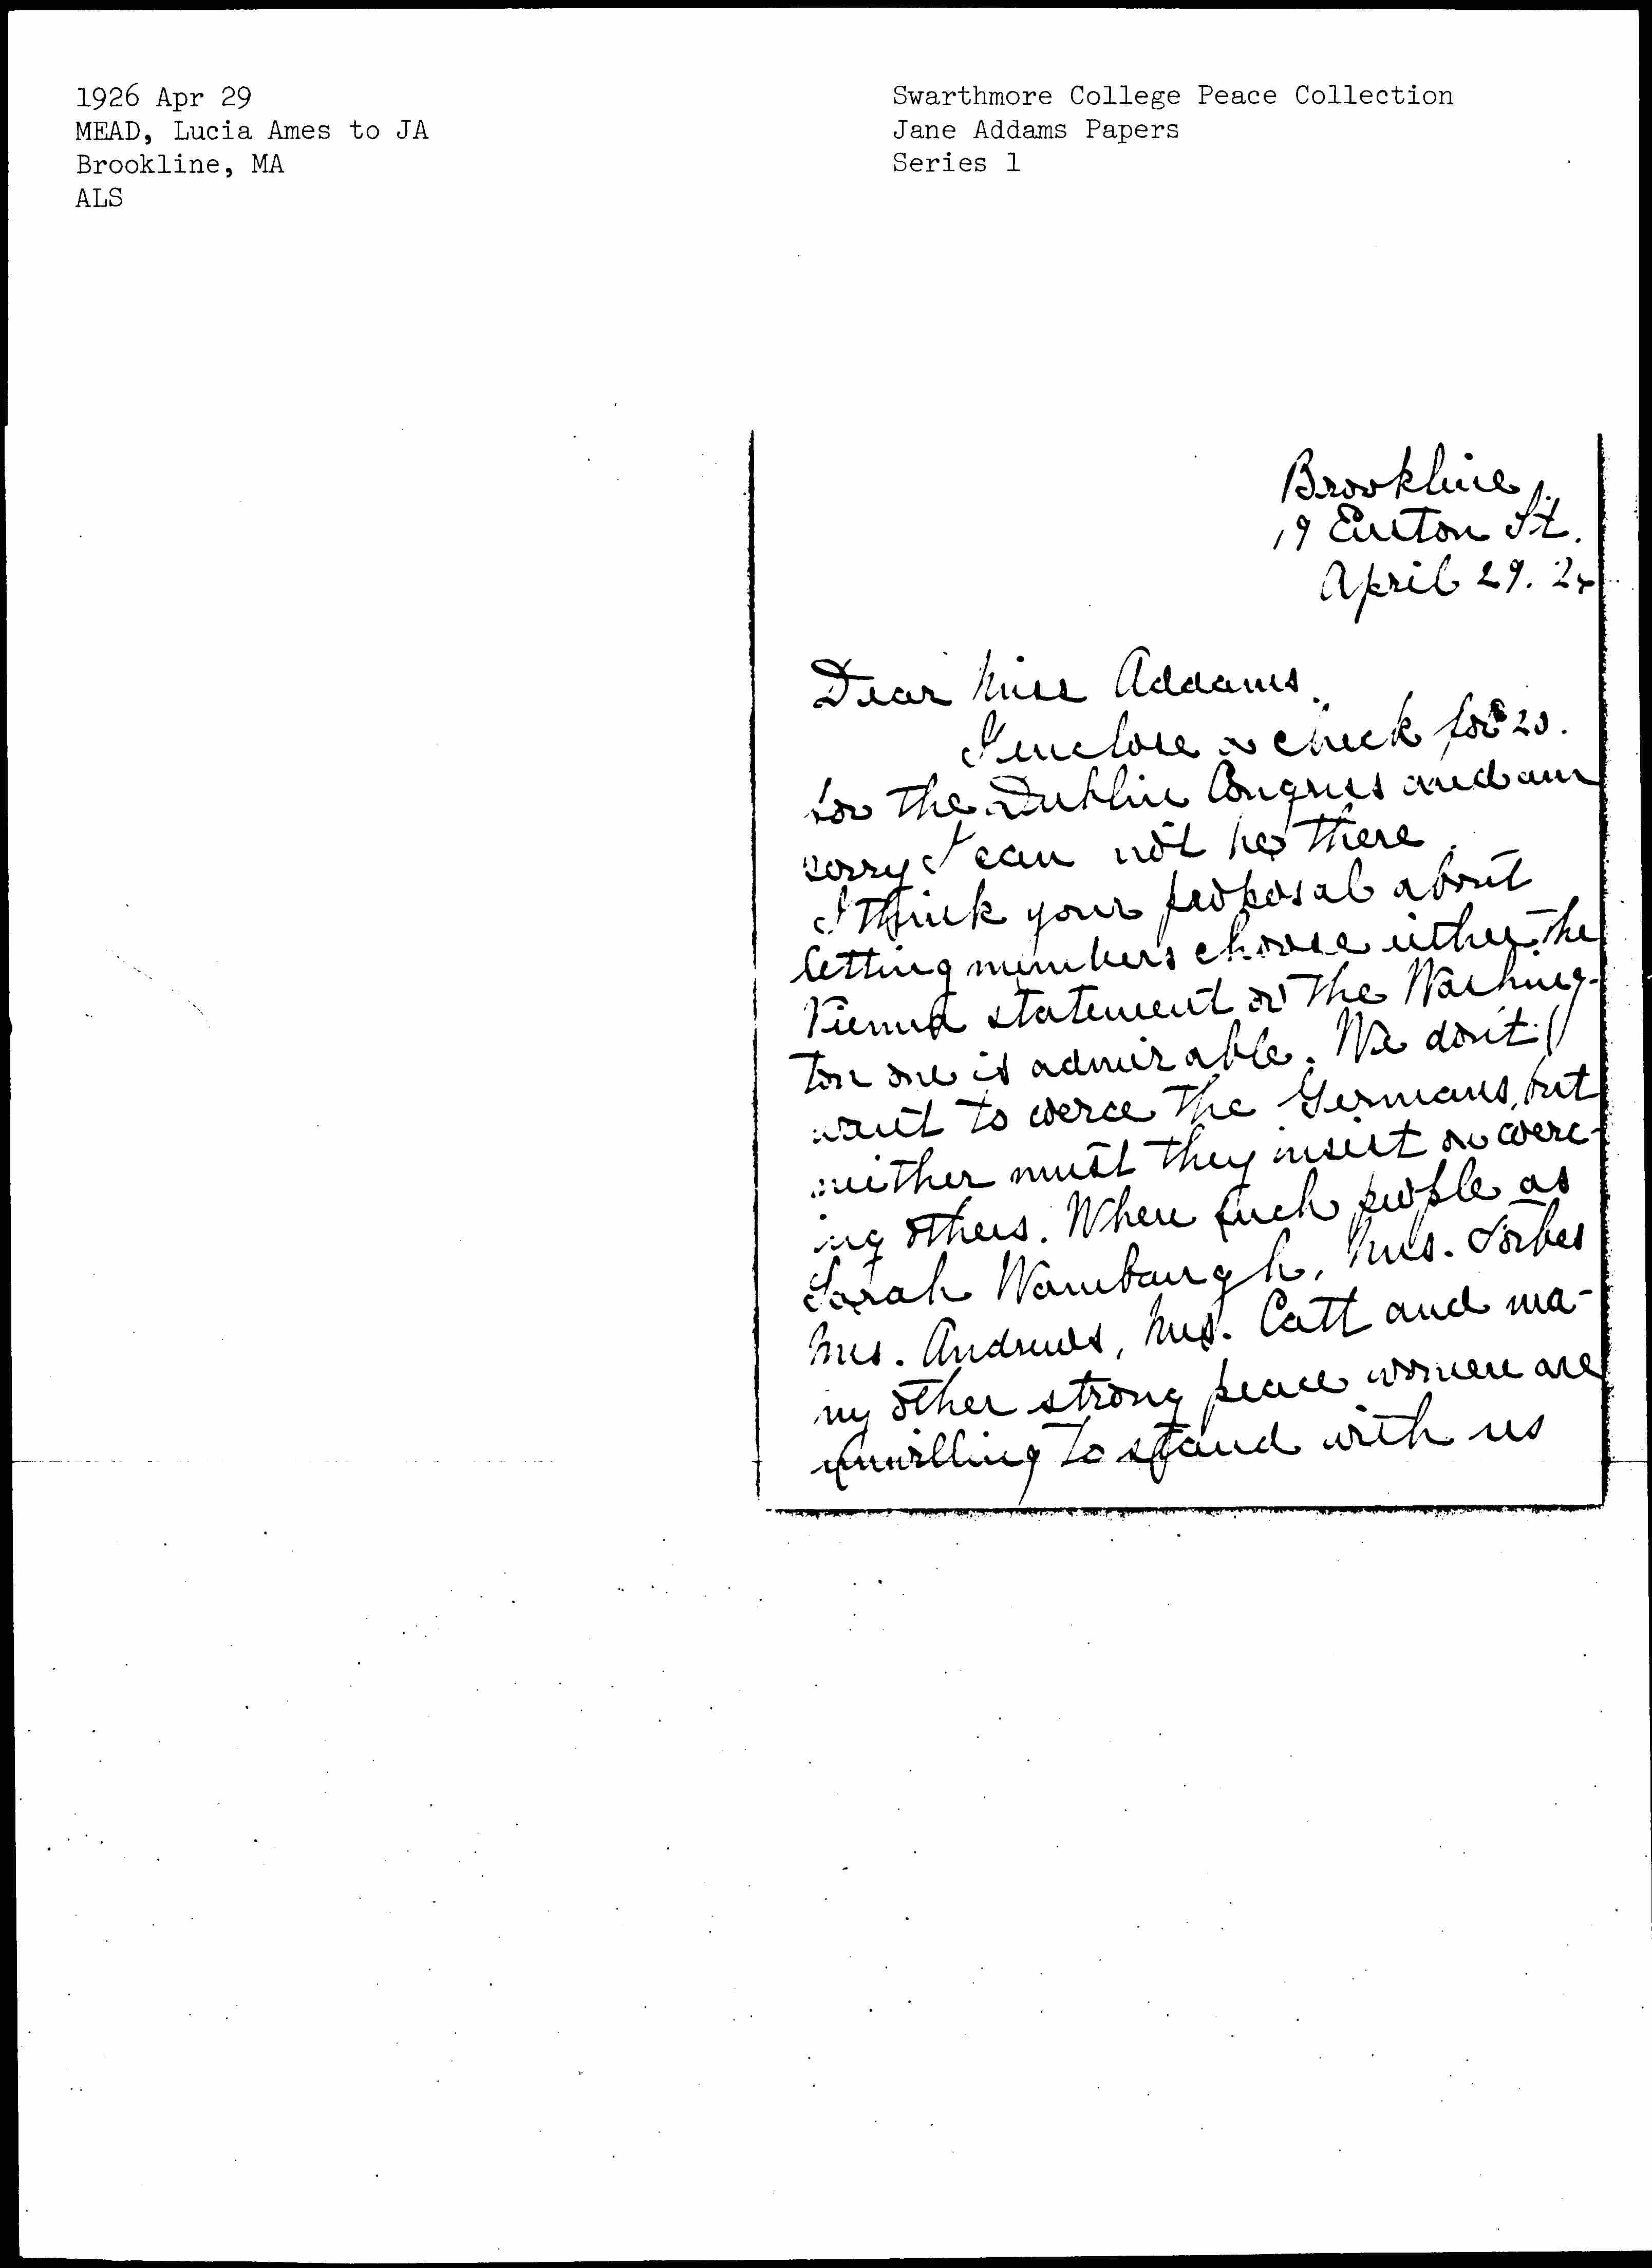 1926 Apr 29
MEAD, Lucia Ames to JA
Brookline, MA
ALS
Swarthmore College Peace Collection
Jane Addams Papers
Series 1
Brookline,
19 Euston St.
April 29. 2
Dear Miss Addams.
I enclose a check for $20.
for the Dublin Congress and am
sorry I can not be there.
I think your proposal about
letting members choose either the
Vienna statement or the Washing-
ton one is admirable. We don't
want to coerce the Germans, but
neither must they insist on coerc-
ing others. When such people as
Sarah Wambaugh, Mrs. Forbes
Mrs. Andrews, Mrs. Catt and ma-
ny other strong peace women are
unwilling to stand with us